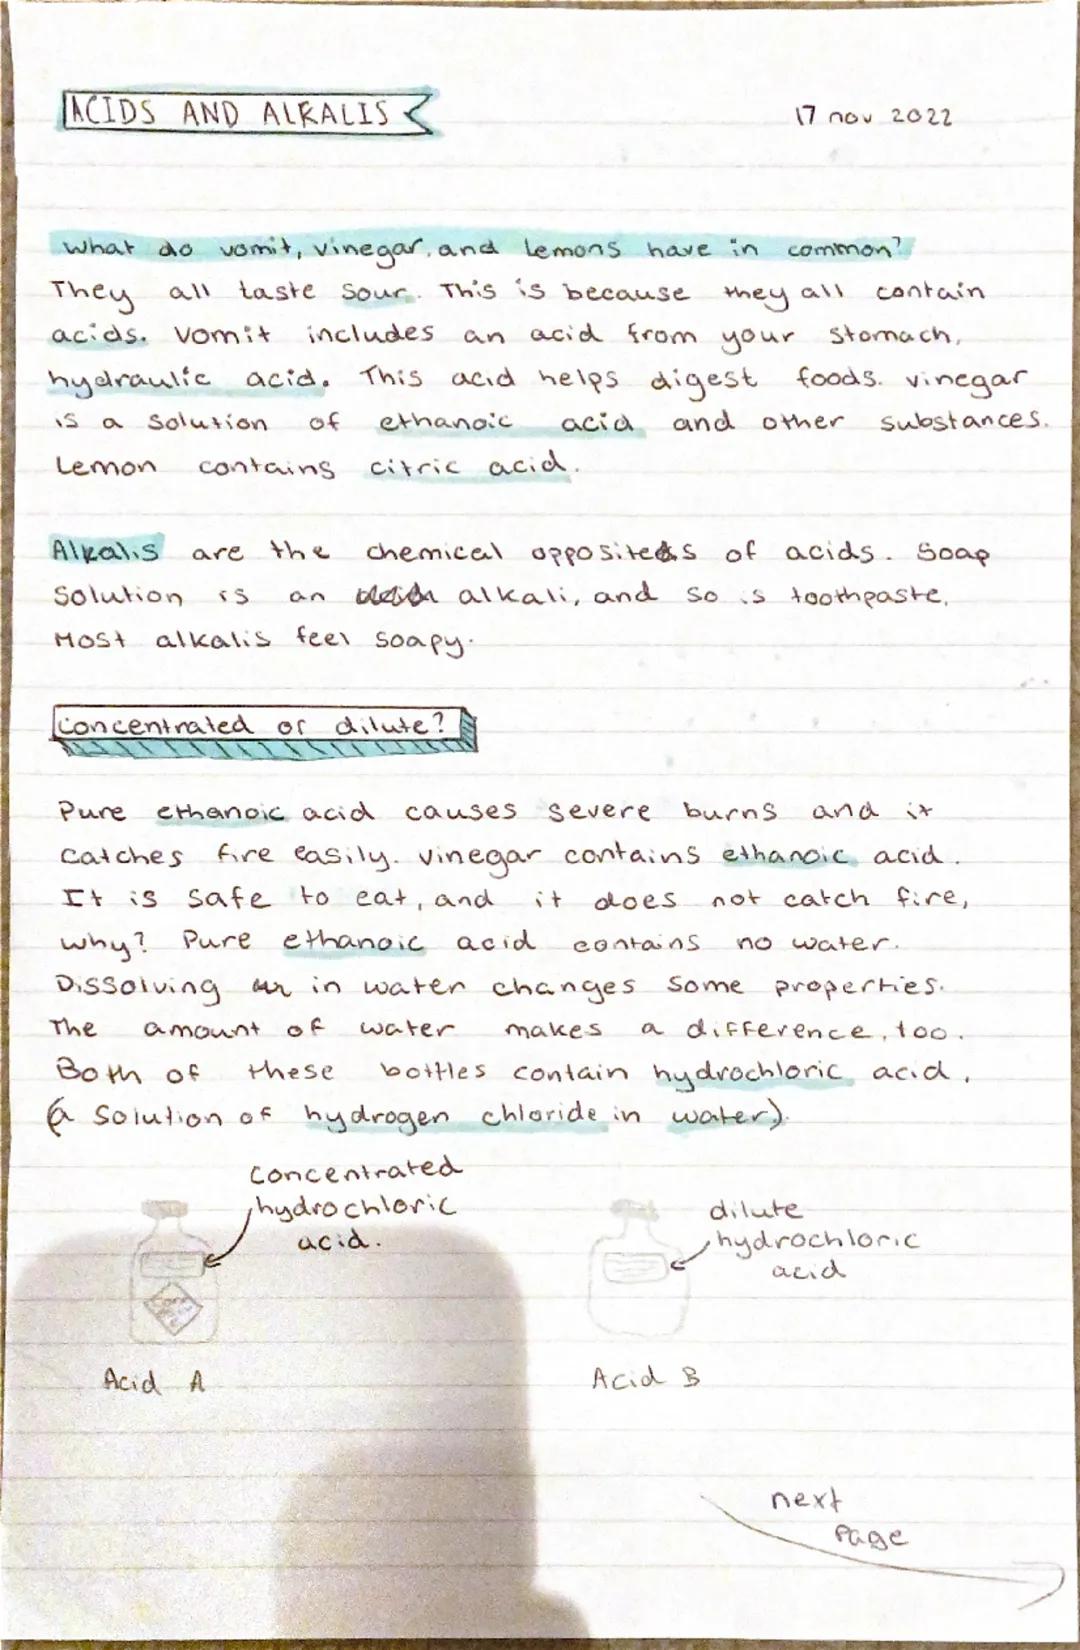 ACIDS AND ALKALIS
17 nov 2022
What do vomit, vinegar, and lemons have in common?
They all taste sour. This is because they all contain
acids. Vomit includes an acid from your stomach,
hydraulic acid. This acid helps digest foods. vinegar
is a solution of ethanoic acid and other substances.
Lemon contains citric acid.
Alkalis are the chemical opposites of acids. Soap
solution is an alkali, and so is toothpaste.
Most alkalis feel soapy.
Concentrated or dilute?
Pure ethanoic acid causes severe burns and it
catches fire easily. vinegar contains ethanoic acid.
It is safe to eat, and it does not catch fire,
why? Pure ethanoic acid contains no water.
Dissolving in water changes some properties.
The amount of water makes a difference, too.
Both of these bottles contain hydrochloric acid,
(a solution of hydrogen chloride in water).
Concentrated
hydrochloric
acid.
dilute
hydrochloric
acid
Acid A
Acid B
next
Page